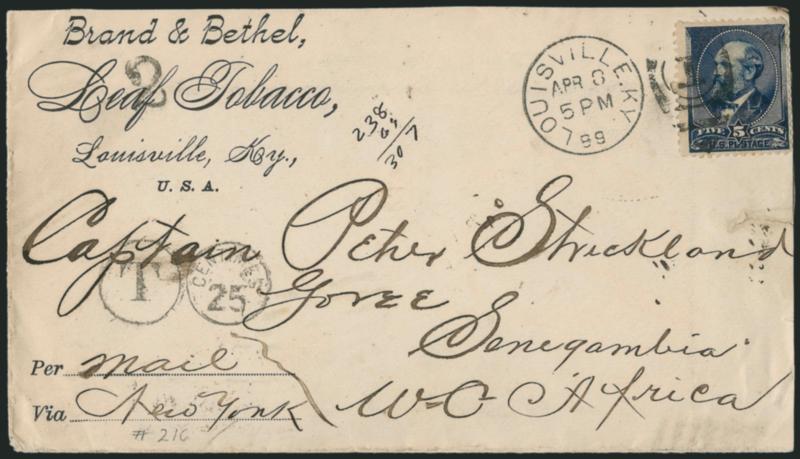 Brand & Bethel,
Leaf Tobacco,
Louisville, Ky.,
U. S. A.
2
LOUISVILLE. KY.
APR 8
5 PM
89
FIVE 5 CENTS
U.S. POSTAGE
238.
30/7
Captain Peter Strickland
Goree
Senegambia
W-C Africa
T
CENTIMES
25
Per mail
Via New York
# 216